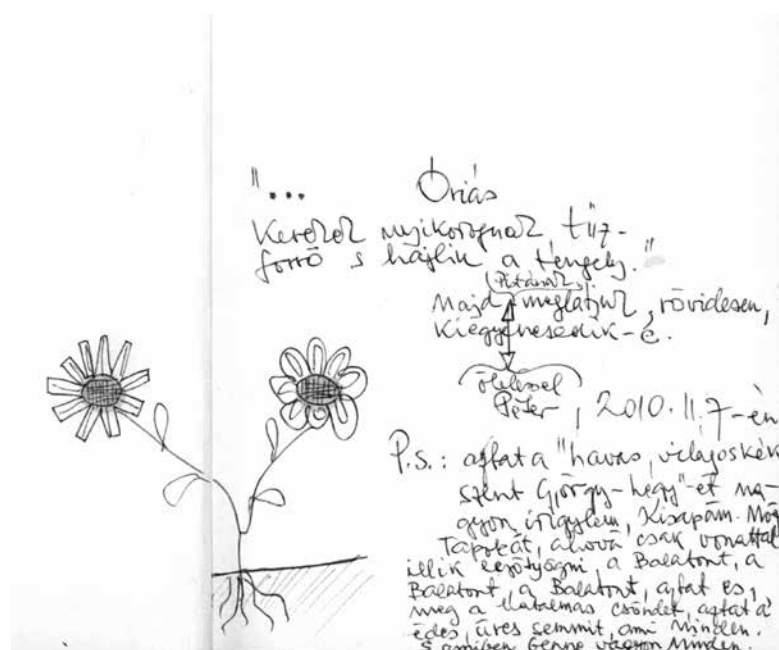 "... Óriás
Kerekek nyikorognak tűz-
forró s hajlik a tengely."
Majd meglátjuk, rövidesen,
kiegyenesedik-é.
öleléssel
Péter, 2010. 11. 7-én
P.s.: aztat a "havas, világoskék
szent György-hegy"-et na-
gyon irigylem, Kisapám. Még
Tapolcát, ahová csak vonattal
illik lezötyögni, a Balatont, a
Balatont, a Balatont, aztat es,
meg a hatalmas csöndet, aztat a
édes, üres semmit, ami minden.
S amiben benne vagyon minden.